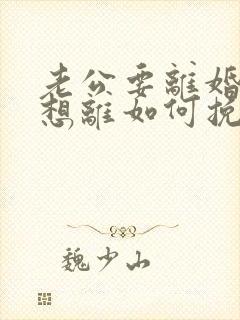 老公要離婚
想離如何挽
魏少山